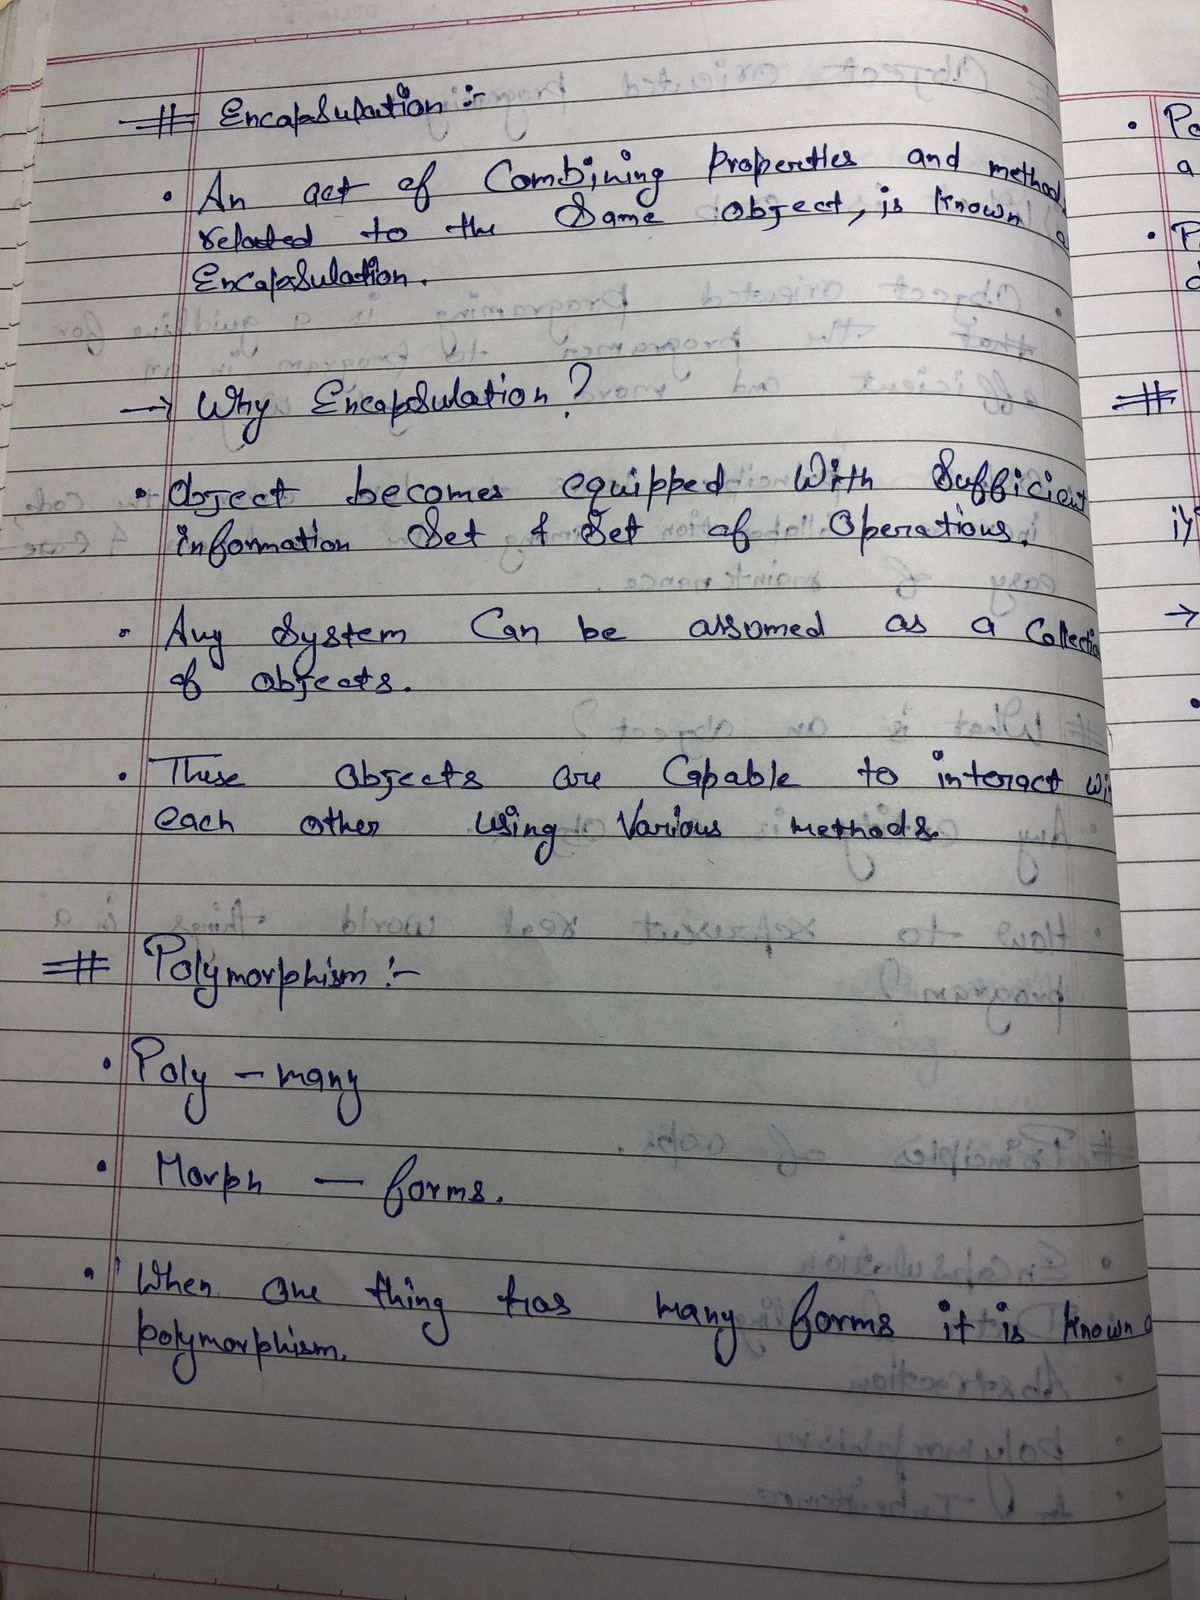 # Encapsulation :-
• An act of Combining Properties and method
related to the Same object, is known a
Encapsulation.
→ Why Encapsulation?
• Object becomes equipped With Sufficient
information Set & Set of Operations.
• Any System Can be assomed as a Collectio
of objects.
• These objects are Capable to interact wi
each other using Various methods.
# Polymorphism :-
• Poly - many
• Morph — forms.
• When one thing has many forms it is known a
polymorphism.
• Po
a
•
#
ii)
→
•